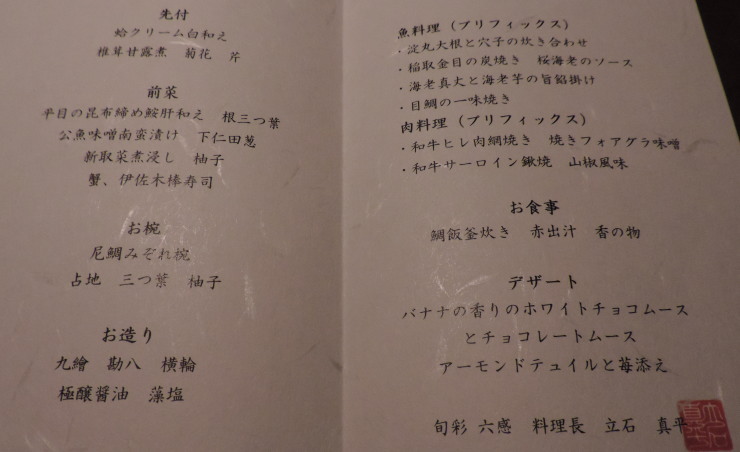 先付
蛤クリーム白和え
椎茸甘露煮 菊花 芹
前菜
平目の昆布締め鮟肝和え 根三つ葉
公魚味噌南蛮漬け 下仁田葱
新取菜煮浸し 柚子
蟹、伊佐木棒寿司
お椀
尼鯛みぞれ椀
占地 三つ葉 柚子
お造り
九繪 勘八 横輪
極醸醤油 藻塩
魚料理（プリフィックス）
・淀丸大根と穴子の炊き合わせ
・稲取金目の炭焼き 桜海老のソース
・海老真丈と海老芋の旨餡掛け
・目鯛の一味焼き
肉料理（プリフィックス）
・和牛ヒレ肉網焼き 焼きフォアグラ味噌
・和牛サーロイン鍬焼 山椒風味
お食事
鯛飯釜炊き 赤出汁 香の物
デザート
バナナの香りのホワイトチョコムース
とチョコレートムース
アーモンドテュイルと苺添え
旬彩 六感 料理長 立石 真平